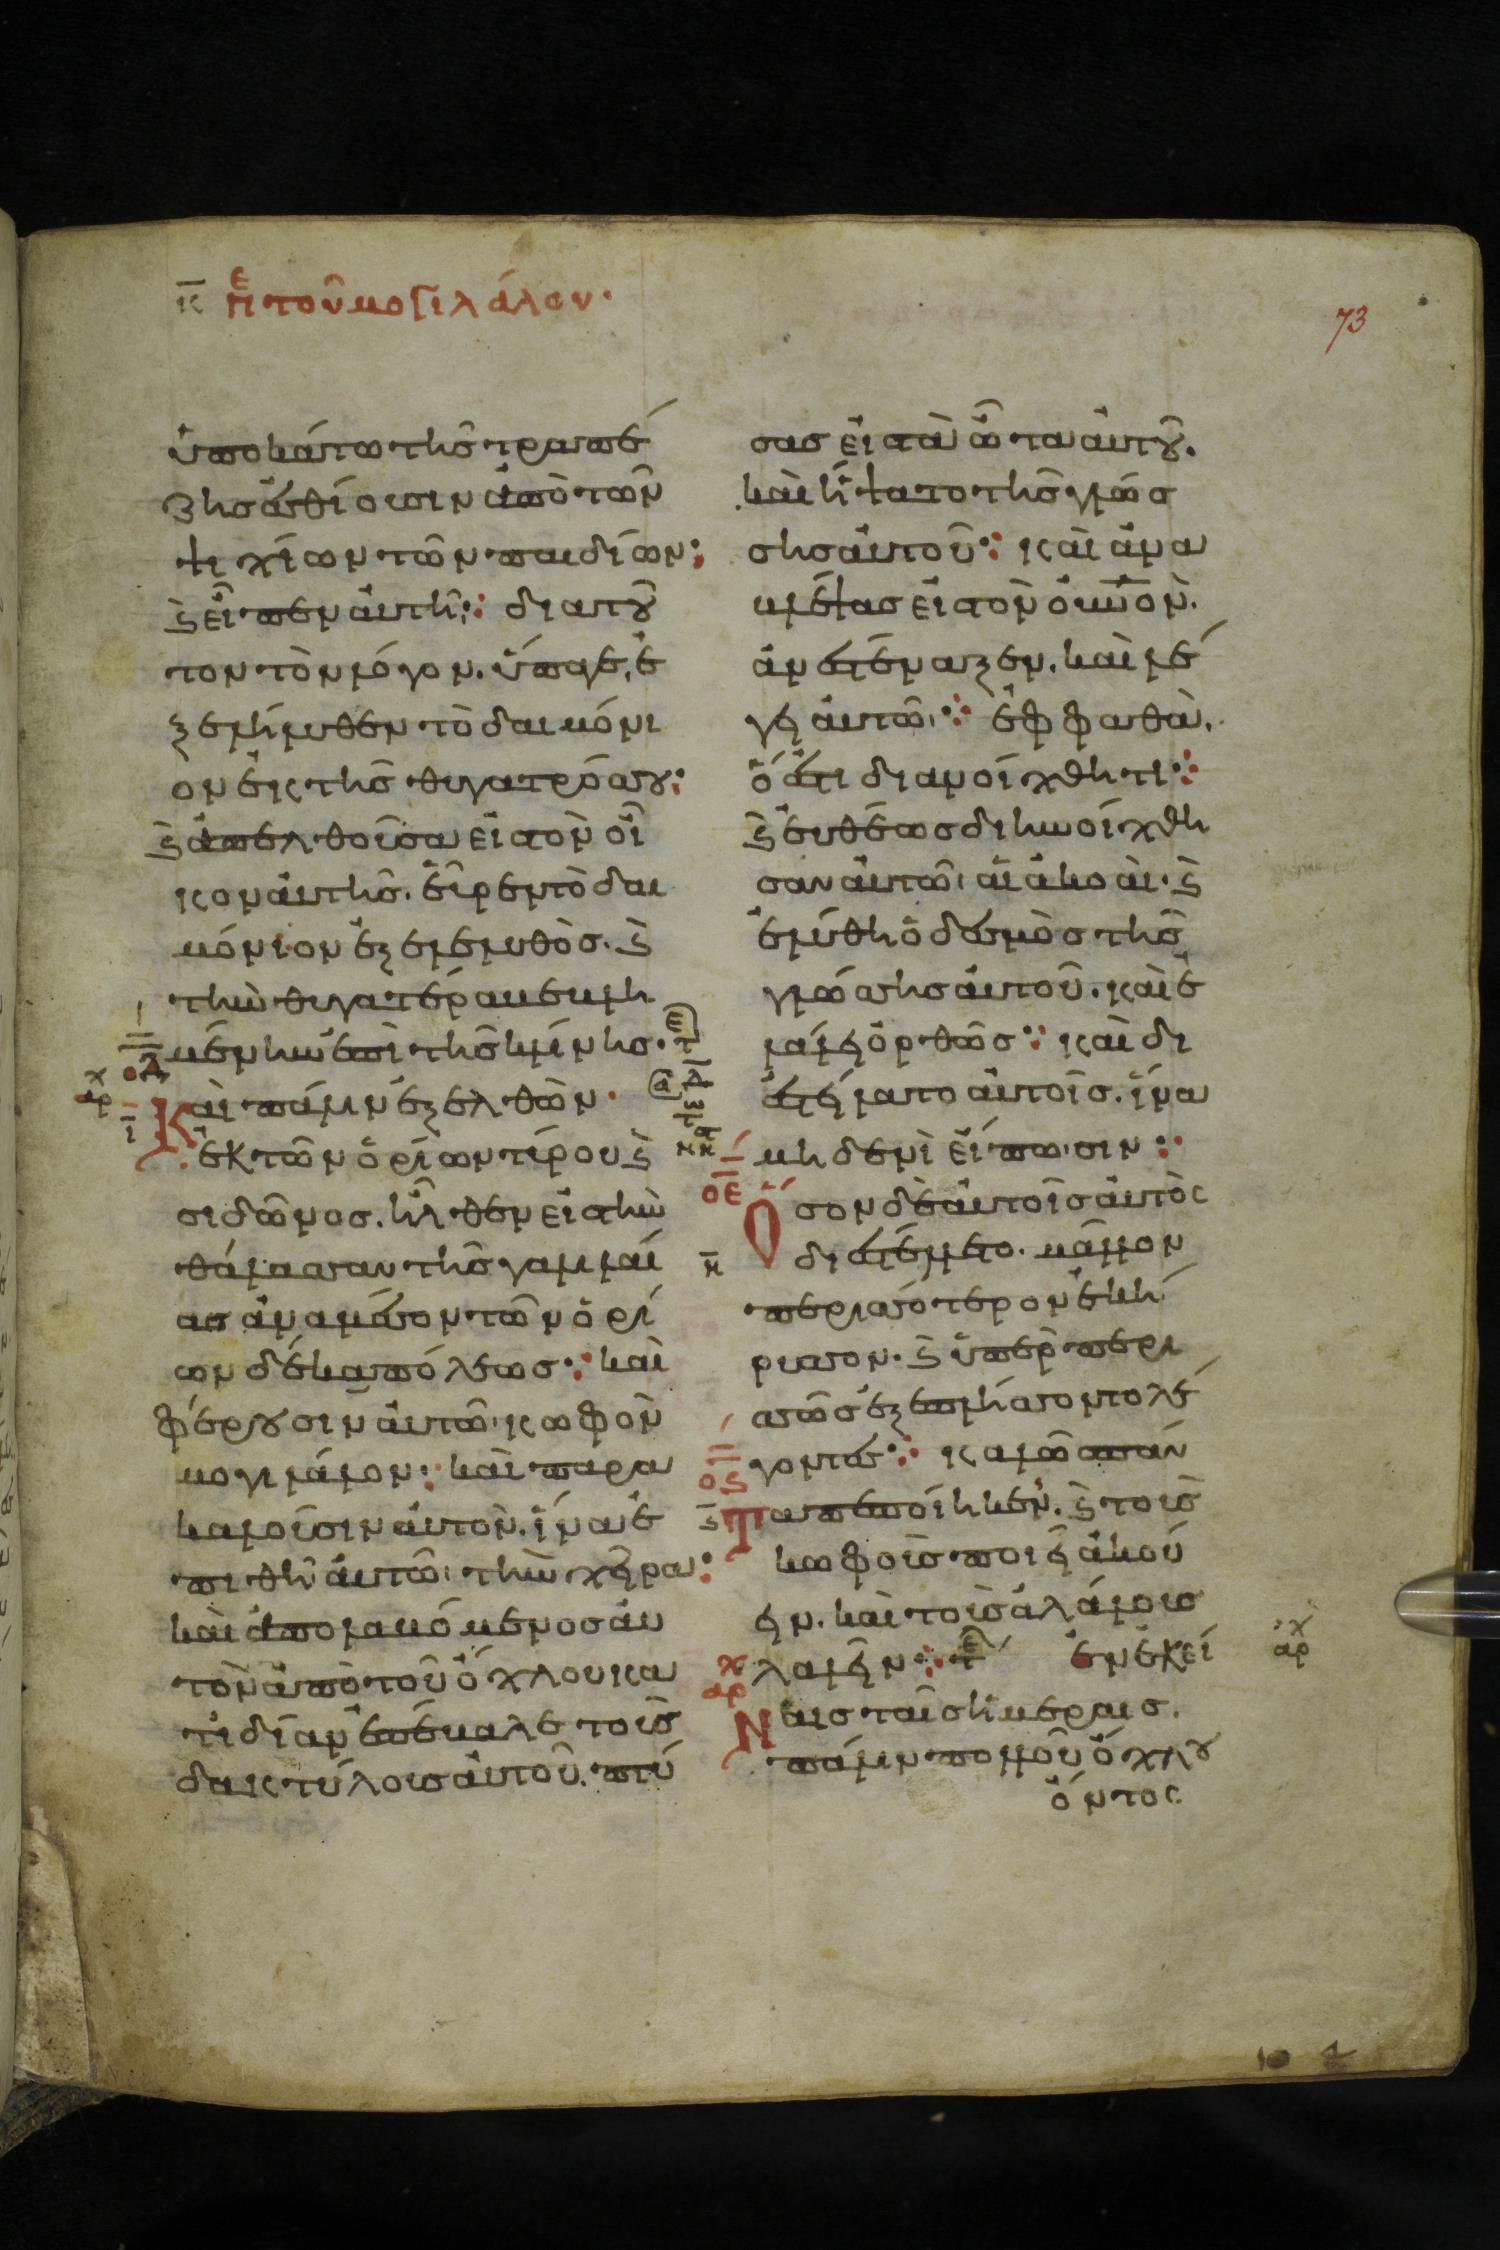 κ ἐπὶ τοῦ μογιλάλου·
73
ὑποκάτω τῆς τραπέ
ζης ἐσθίουσιν ἀπὸ τῶν
ψιχίων τῶν παιδίων:
ϗ εἶπεν αὐτῆ· διὰ τοῦ
τον τὸν λόγον. ὕπαγε, ἐ
ξελήλυθεν τὸ δαιμόνι
ον ἐκ τῆς θυγατρός σου:
ϗ ἀπελθοῦσα εἰς τὸν οἶ
κον αὐτῆς. εὗρεν τὸ δαι
μόνιον ἐξεληλυθὸς. ϗ
τὴν θυγατέρα βεβλη
μένην ἐπὶ τῆς κλίνης·
οδ
Καὶ πάλιν ἐξελθὼν·
ἐκ τῶν ὁρίων τύρου ϗ
σιδῶνος. ἦλθεν εἰς τὴν
θάλασσαν τῆς γαλιλαί
ας ἀναμέσον τῶν ὁρί
ων δεκαπόλεως: καὶ
φέρουσιν αὐτῶ κωφὸν
μογιλάλον: καὶ παρα
καλοῦσιν αὐτὸν. ἵνα ἐ
πιθῆ αὐτῶ τὴν χεῖρα:
καὶ ἀπολαβόμενος αὐ
τὸν ἀπὸ τοῦ ὄχλου κα
τιδίαν ἐπέβαλε τοὺς
δακτύλους αὐτοῦ. πτύ
σας εἰς τὰ ὦτα αὐτοῦ.
καὶ ἥψατο τῆς γλώσ
σης αὐτοῦ: καὶ ἀνα
βλέψας εἰς τὸν οὐνὸν.
ἀνεστέναξεν. καὶ λέ
γει αὐτῶ: ἐφφαθὰ.
ὅ ἐστι διανοίχθητι:
ϗ εὐθέως διηνοίχθη
σαν αὐτῶ αἱ ἀκοαὶ. ϗ
ἐλύθη ὁ δεσμὸς τῆς
γλώσσης αὐτοῦ. καὶ ἐ
λάλει ὀρθῶς: καὶ δι
εστείλατο αὐτοῖς. ἵνα
μηδενὶ εἴπωσιν:
οε
Ὅσον δὲ αὐτοῖς αὐτὸς
διεστέλλετο. μᾶλλον
περισσότερον ἐκή
ρυσσον. ϗ ὑπὲρ περι
σσῶς ἐξεπλήσσοντο λέ
γοντες: καλῶς πάν
ος
Τα πεποίηκεν. ϗ τοὺς
κωφοὺς ποιεῖ ἀκού
ειν. καὶ τοὺς ἀλάλους
λαλεῖν: ἐν ἐκεί
Ναις ταῖς ἡμέραις.
πάλιν πολλοῦ ὄχλου
ὄντος